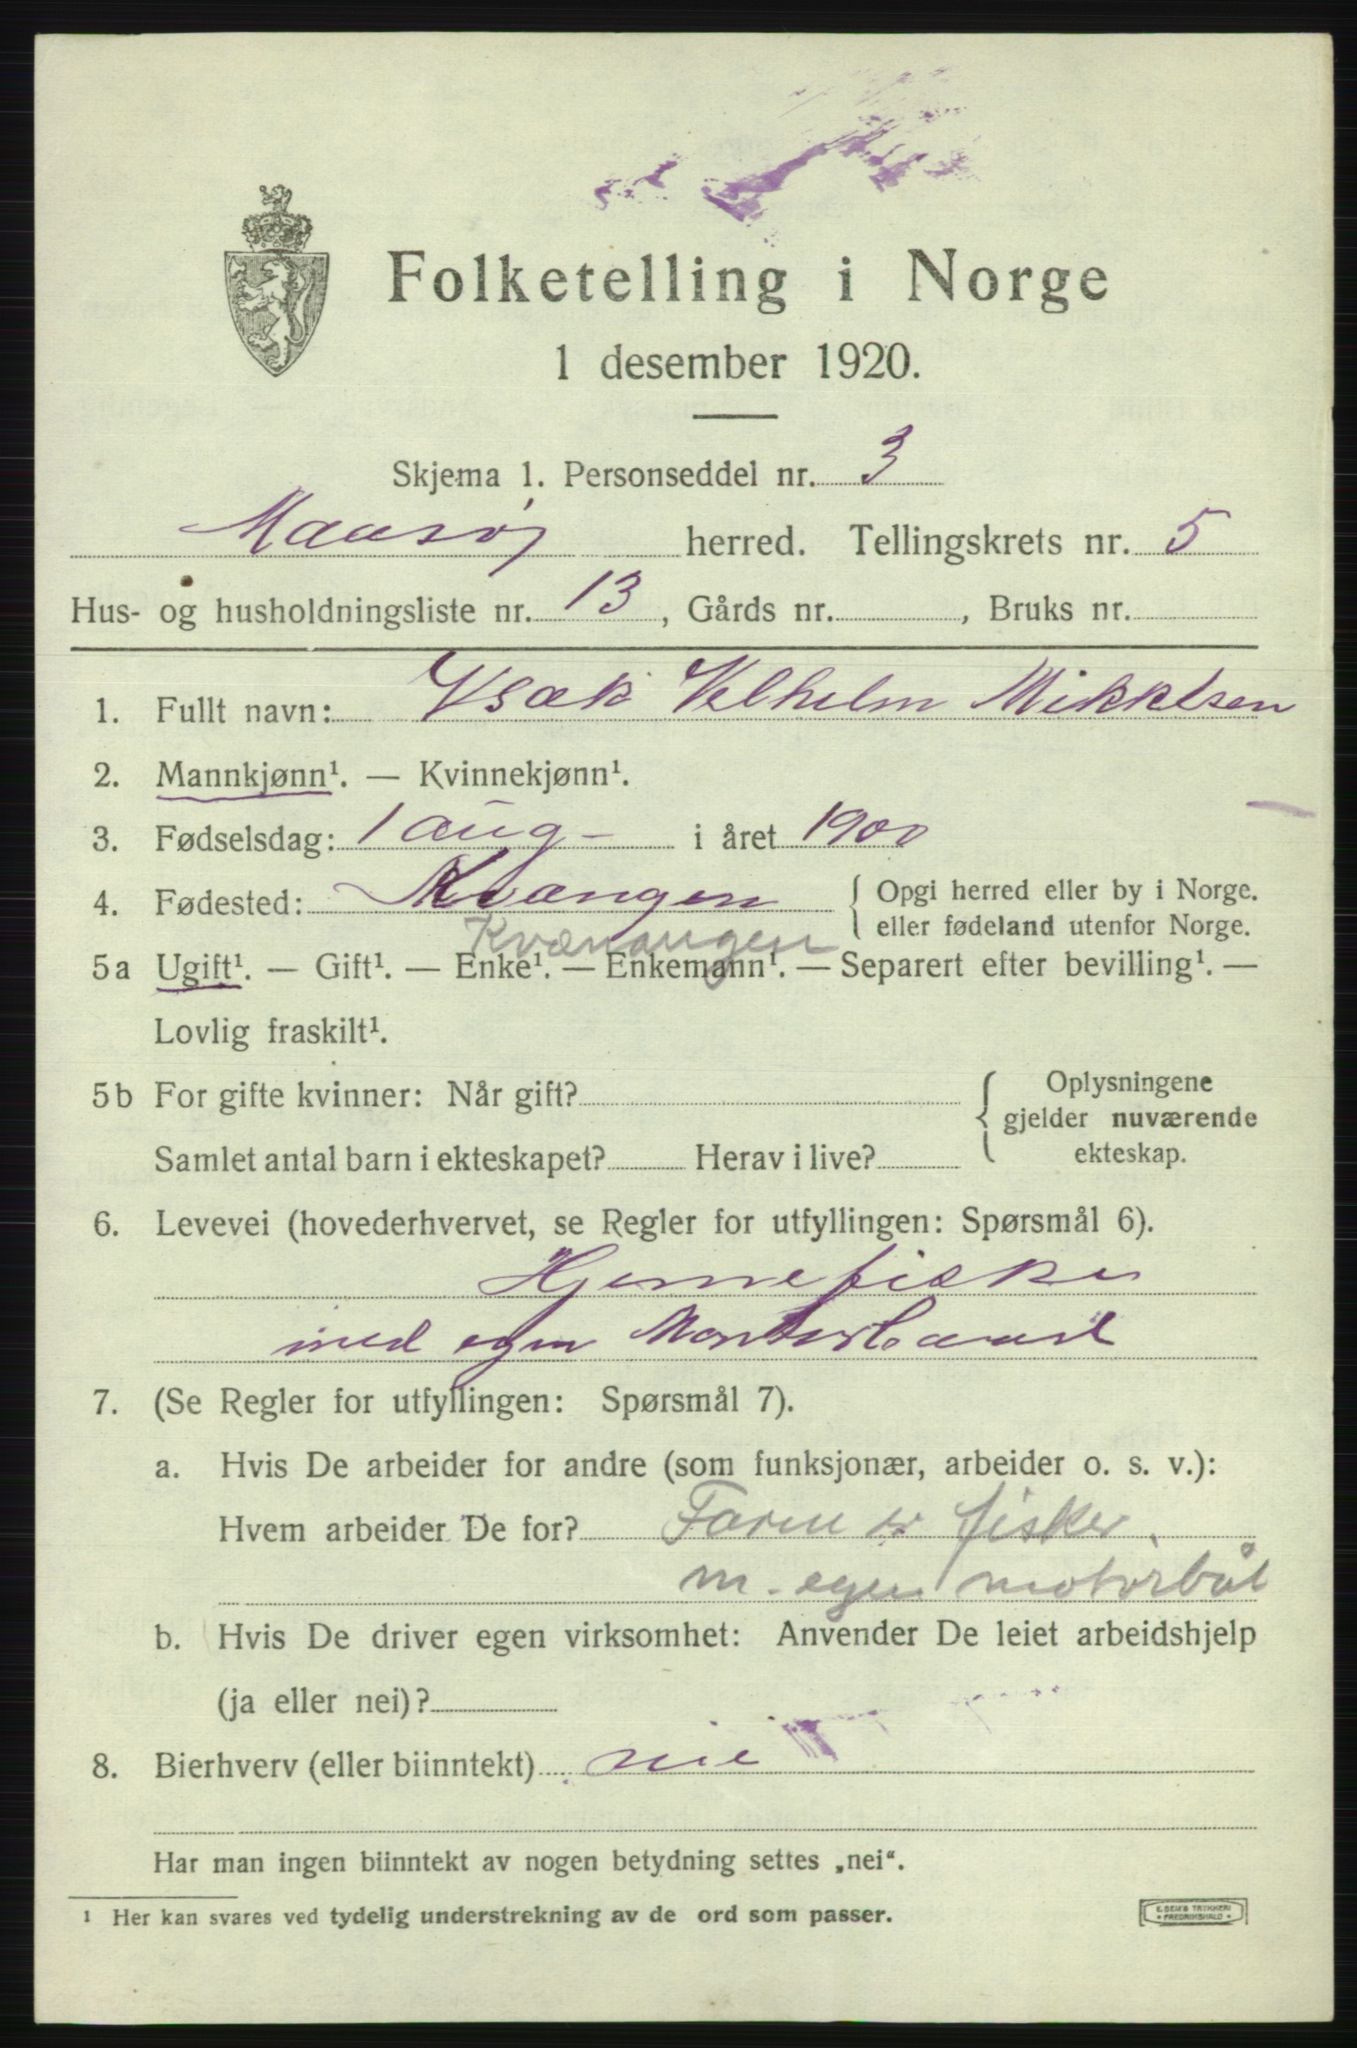 Folketelling i Norge
1 desember 1920.
Skjema 1. Personseddel nr. 3
Maasøj herred. Tellingskrets nr. 5
Hus- og husholdningsliste nr. 13, Gårds nr. , Bruks nr.
1. Fullt navn: Ysak Velhelm Mikkelsen
2. Mannkjønn¹. — Kvinnekjønn¹.
3. Fødselsdag: 1 aug - i året 1900
4. Fødested: Kvængen { Opgi herred eller by i Norge.
eller fødeland utenfor Norge.
Kvænangen
5a Ugift¹. — Gift¹. — Enke¹. — Enkemann¹. — Separert efter bevilling¹. —
Lovlig fraskilt¹.
5b For gifte kvinner: Når gift? { Oplysningene
gjelder nuværende
Samlet antal barn i ekteskapet? Herav i live? ekteskap.
6. Levevei (hovederhvervet, se Regler for utfyllingen: Spørsmål 6).
Hjemmefisker
med egen
7. (Se Regler for utfyllingen: Spørsmål 7).
a. Hvis De arbeider for andre (som funksjonær, arbeider o. s. v.):
Hvem arbeider De for? Faren er fisker
m. egen motorbåt
b. Hvis De driver egen virksomhet: Anvender De leiet arbeidshjelp
(ja eller nei)?
8. Bierhverv (eller biinntekt) nie
Har man ingen biinntekt av nogen betydning settes „nei“.
¹ Her kan svares ved tydelig understrekning av de ord som passer.
E. SEM'S TRYKKERI
• FREDRIKSHALD •